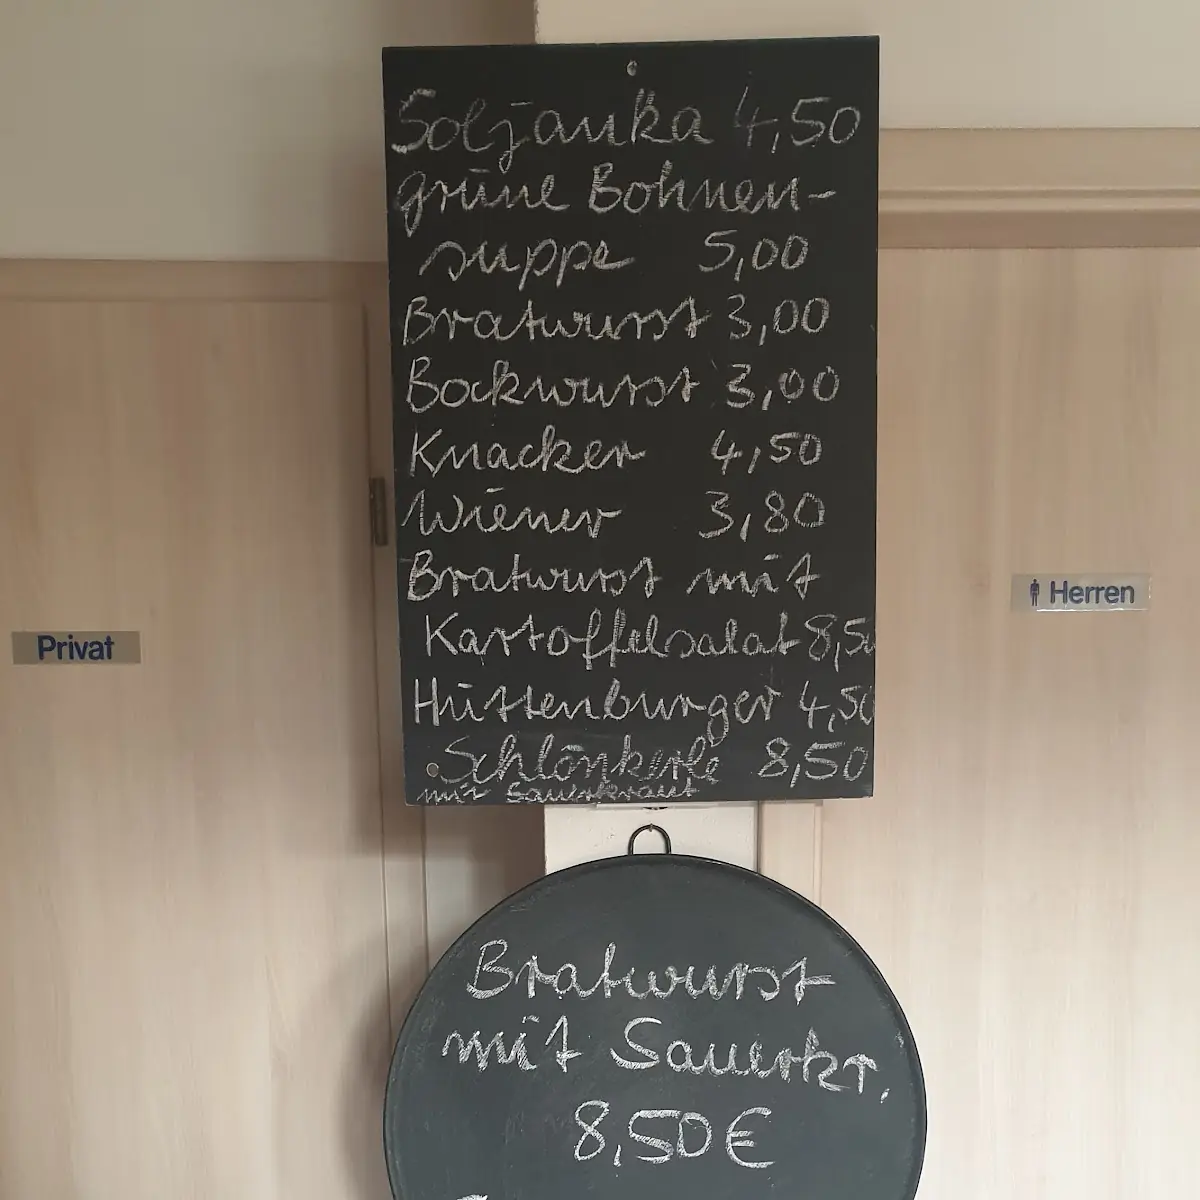 Soljanka 4,50
grüne Bohnen-
suppe 5,00
Bratwurst 3,00
Bockwurst 3,00
Knacker 4,50
Wiener 3,80
Bratwurst mit
Kartoffelsalat 8,50
Hüttenburger 4,50
Schlönkerle 8,50
mit Sauerkraut
Privat
Herren
Bratwurst
mit Sauerkr.
8,50€